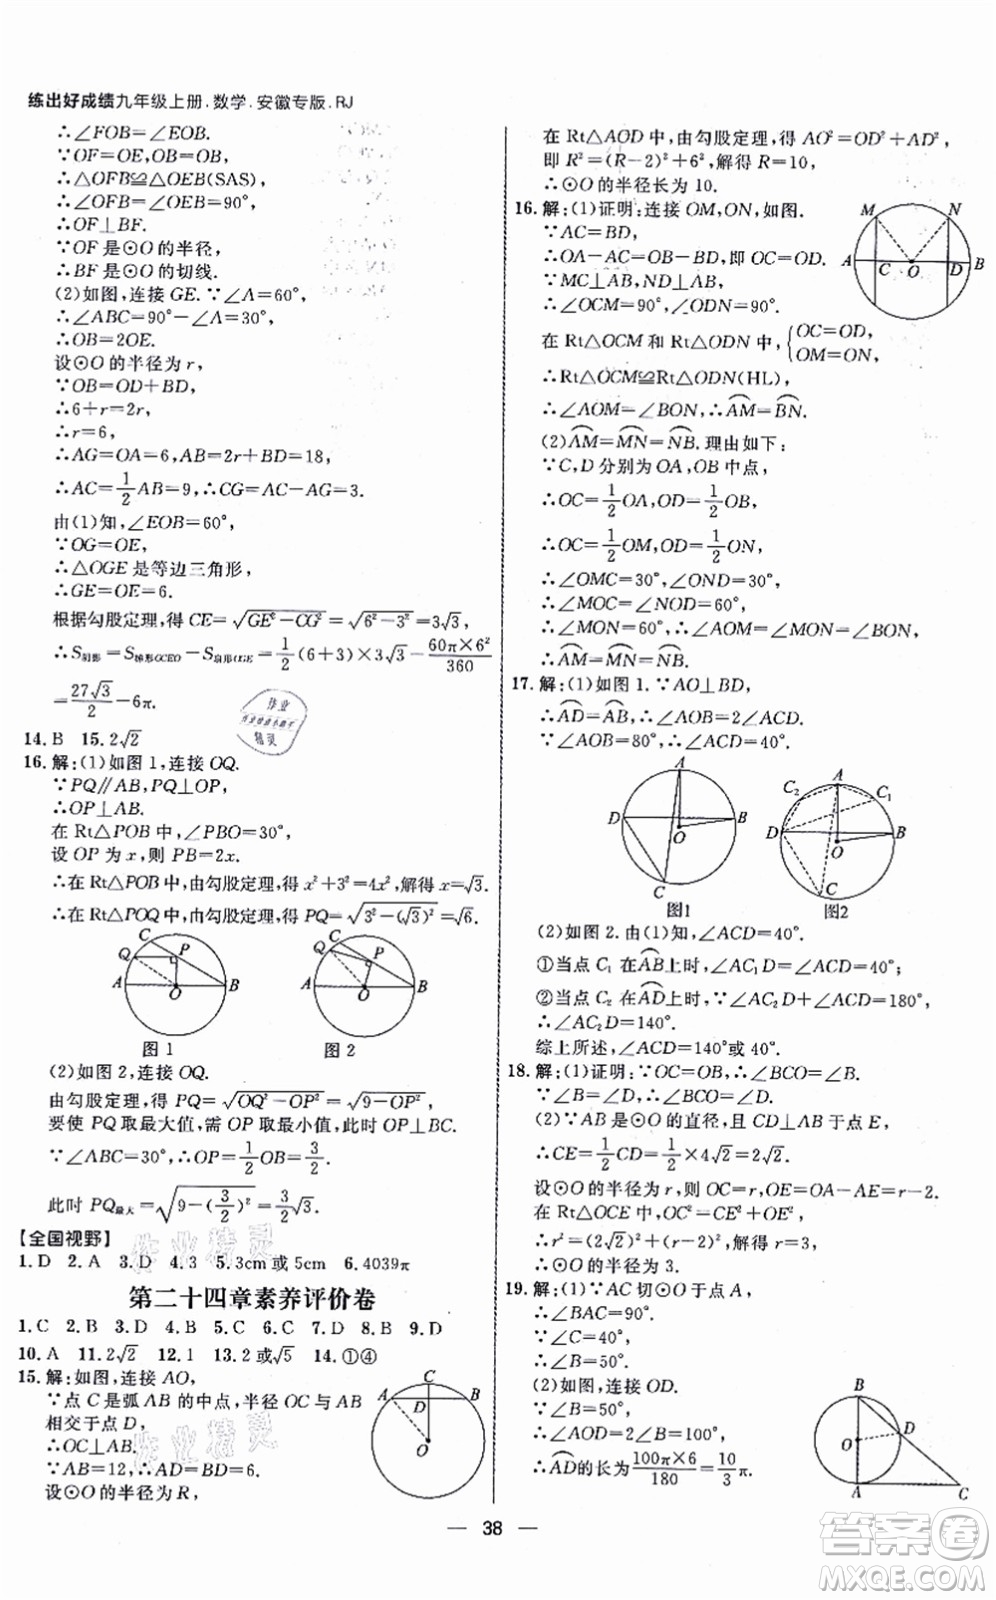 练出好成绩九年级上册.数学.安徽专版.RJ
∴∠FOB=∠EOB.
∵OF=OE,OB=OB,
∴△OFB≌△OEB(SAS),
∴∠OFB=∠OEB=90°,
∴OF⊥BF.
∵OF是⊙O的半径,
∴BF是⊙O的切线.
(2)如图,连接GE.∵∠A=60°,
∴∠ABC=90°-∠A=30°,
∴OB=2OE.
设⊙O的半径为r,
∵OB=OD+BD,
∴6+r=2r,
∴r=6,
∴AG=OA=6,AB=2r+BD=18,
∴AC=1/2AB=9,∴CG=AC-AG=3.
由(1)知,∠EOB=60°,
∵OG=OE,
∴△OGE是等边三角形,
∴GE=OE=6.
根据勾股定理,得CE=√(GE²-CG²)=√(6²-3²)=3√3,
∴S阴影=S梯形GCEO-S扇形OGE=1/2(6+3)×3√3-60π×6²/360
=27√3/2-6π.
14.B 15.2√2
16.解:(1)如图1,连接OQ.
∵PQ∥AB,PQ⊥OP,
∴OP⊥AB.
在Rt△POB中,∠PBO=30°,
设OP为x,则PB=2x.
∴在Rt△POB中,由勾股定理,得x²+3²=4x²,解得x=√3.
∴在Rt△POQ中,由勾股定理,得PQ=√(3²-(√3)²)=√6.
C Q P A O B
C Q P A O B
图1 图2
(2)如图2,连接OQ.
由勾股定理,得PQ=√(OQ²-OP²)=√(9-OP²),
要使PQ取最大值,需OP取最小值,此时OP⊥BC.
∵∠ABC=30°,∴OP=1/2OB=3/2.
此时PQ最大=√(9-(3/2)²)=3/2√3.
【全国视野】
1.D 2.A 3.D 4.3 5.3cm或5cm 6.4039π
第二十四章素养评价卷
1.C 2.B 3.D 4.B 5.C 6.C 7.D 8.B 9.D
10.A 11.2√2 12.1 13.2或√5 14.①④
15.解:如图,连接AO,
∵点C是弧AB的中点,半径OC与AB
相交于点D,
∴OC⊥AB.
∵AB=12,∴AD=BD=6.
设⊙O的半径为R,
C A D B O
在Rt△AOD中,由勾股定理,得AO²=OD²+AD²,
即R²=(R-2)²+6²,解得R=10,
∴⊙O的半径长为10.
16.解:(1)证明:连接OM,ON,如图.
∵AC=BD,
∴OA-AC=OB-BD,即OC=OD.
∵MC⊥AB,ND⊥AB,
∴∠OCM=90°,∠ODN=90°.
M N A C O D B
在Rt△OCM和Rt△ODN中,{OC=OD,
OM=ON,
∴Rt△OCM≌Rt△ODN(HL),
∴∠AOM=∠BON,∴A͡M=B͡N.
(2)A͡M=M͡N=N͡B.理由如下:
∵C,D分别为OA,OB中点,
∴OC=1/2OA,OD=1/2OB,
∴OC=1/2OM,OD=1/2ON,
∴∠OMC=30°,∠OND=30°,
∴∠MOC=∠NOD=60°,
∴∠MON=60°,∴∠AOM=∠MON=∠BON,
∴A͡M=M͡N=N͡B.
17.解:(1)如图1.∵AO⊥BD,
∴A͡D=A͡B,∴∠AOB=2∠ACD.
∵∠AOB=80°,∴∠ACD=40°.
A D B O C
A C₂ C₁ D B O C
图1 图2
(2)如图2.由(1)知,∠ACD=40°.
①当点C₁在A͡B上时,∠AC₁D=∠ACD=40°;
②当点C₂在A͡D上时,∵∠AC₂D+∠ACD=180°,
∴∠AC₂D=140°.
综上所述,∠ACD=140°或40°.
18.解:(1)证明:∵OC=OB,∴∠BCO=∠B.
∵∠B=∠D,∴∠BCO=∠D.
(2)∵AB是⊙O的直径,且CD⊥AB于点E,
∴CE=1/2CD=1/2×4√2=2√2.
设⊙O的半径为r,则OC=r,OE=OA-AE=r-2.
在Rt△OCE中,OC²=CE²+OE²,
∴r²=(2√2)²+(r-2)²,解得r=3,
∴⊙O的半径为3.
19.解:(1)∵AC切⊙O于点A,
∴∠BAC=90°.
∵∠C=40°,
∴∠B=50°.
(2)如图,连接OD.
∵∠B=50°,
∴∠AOD=2∠B=100°,
∴A͡D的长为100π×6/180=10/3π.
B D O A C
38
作业
精灵
作业精灵
作业精灵
答案卷
MXQE.COM